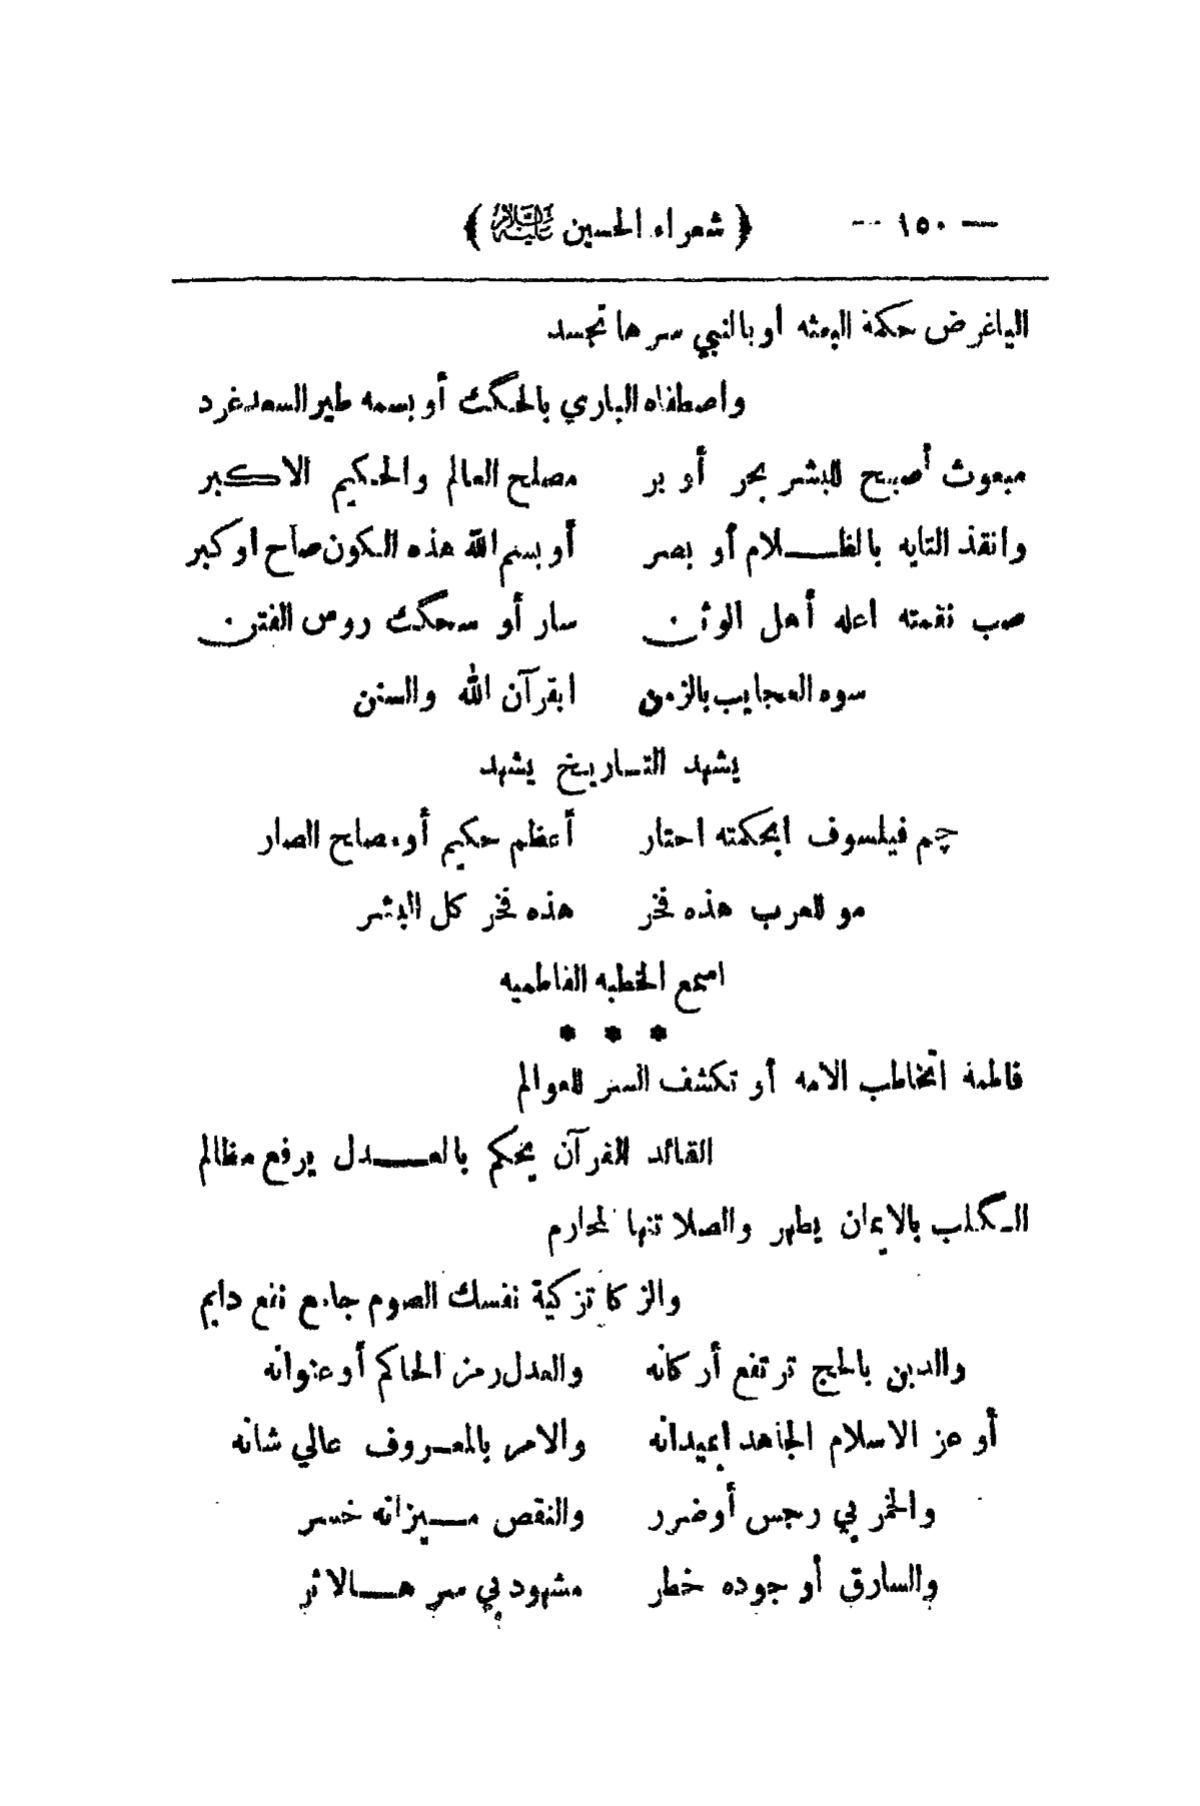 — ١٥٠ — ﴿ شعراء الحسين عليه السلام ﴾
الياغرض حكمة البعثه أو بالنبي سرها تجسد
واصطفاه الباري بالحگ أو بسمه طير السعد غرد
مبعوث أصبح للبشر بحر أو بر مصلح العالم والحكيم الاكبر
وانقذ التايه بالظلام أو بصر أو بسم الله هذه الكون صاح او كبر
صب نقمته اعله أهل الوثن سار أو سحگ روس الفتن
سوه العجايب بالزمن ابقرآن الله والسنن
يشهد التاريخ يشهد
چم فيلسوف ابحكمته احتار أعظم حكيم أو صالح الصار
مو للعرب هذه فخر هذه فخر كل البشر
اسمع الخطبه الفاطميه
* * *
فاطمة اتخاطب الامه أو تكشف السر للعوالم
القائد للقرآن يحكم بالعدل يرفع مظالم
الگلب بالايمان يطهر والصلا تنها لمحارم
والزكا تزكية نفسك الصوم جامع نفع دايم
والدين بالحج ترتفع أركانه والعدل رمز الحاكم أو عنوانه
أو عز الاسلام الجاهد ابميدانه والامر بالمعروف عالي شانه
والخمر بي رجس أو ضرر والنقص ميزانه خسر
والسارق أو جوده خطر مشهود بي سر هالاثر